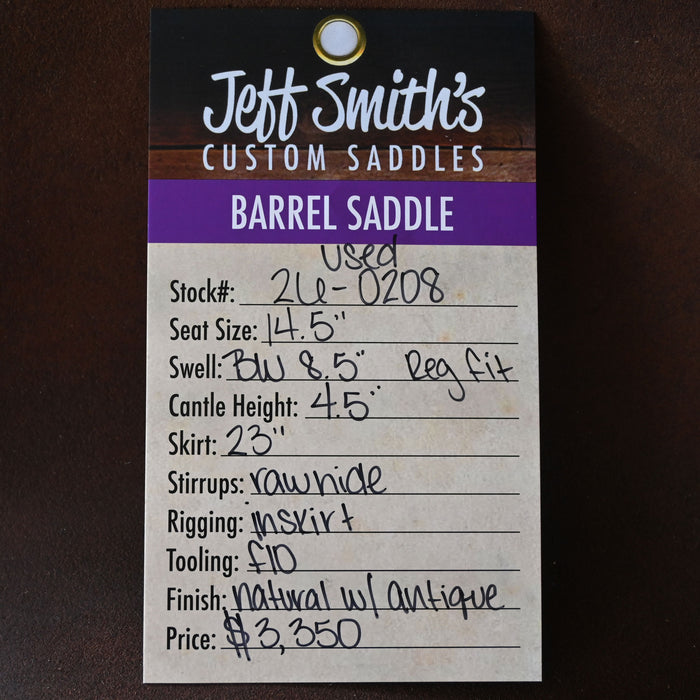 Jeff Smith's
CUSTOM SADDLES
BARREL SADDLE
used
Stock#: 2U-0208
Seat Size: 14.5"
Swell: BW 8.5" Reg fit
Cantle Height: 4.5"
Skirt: 23"
Stirrups: rawhide
Rigging: inskirt
Tooling: f10
Finish: natural w/ antique
Price: $3,350